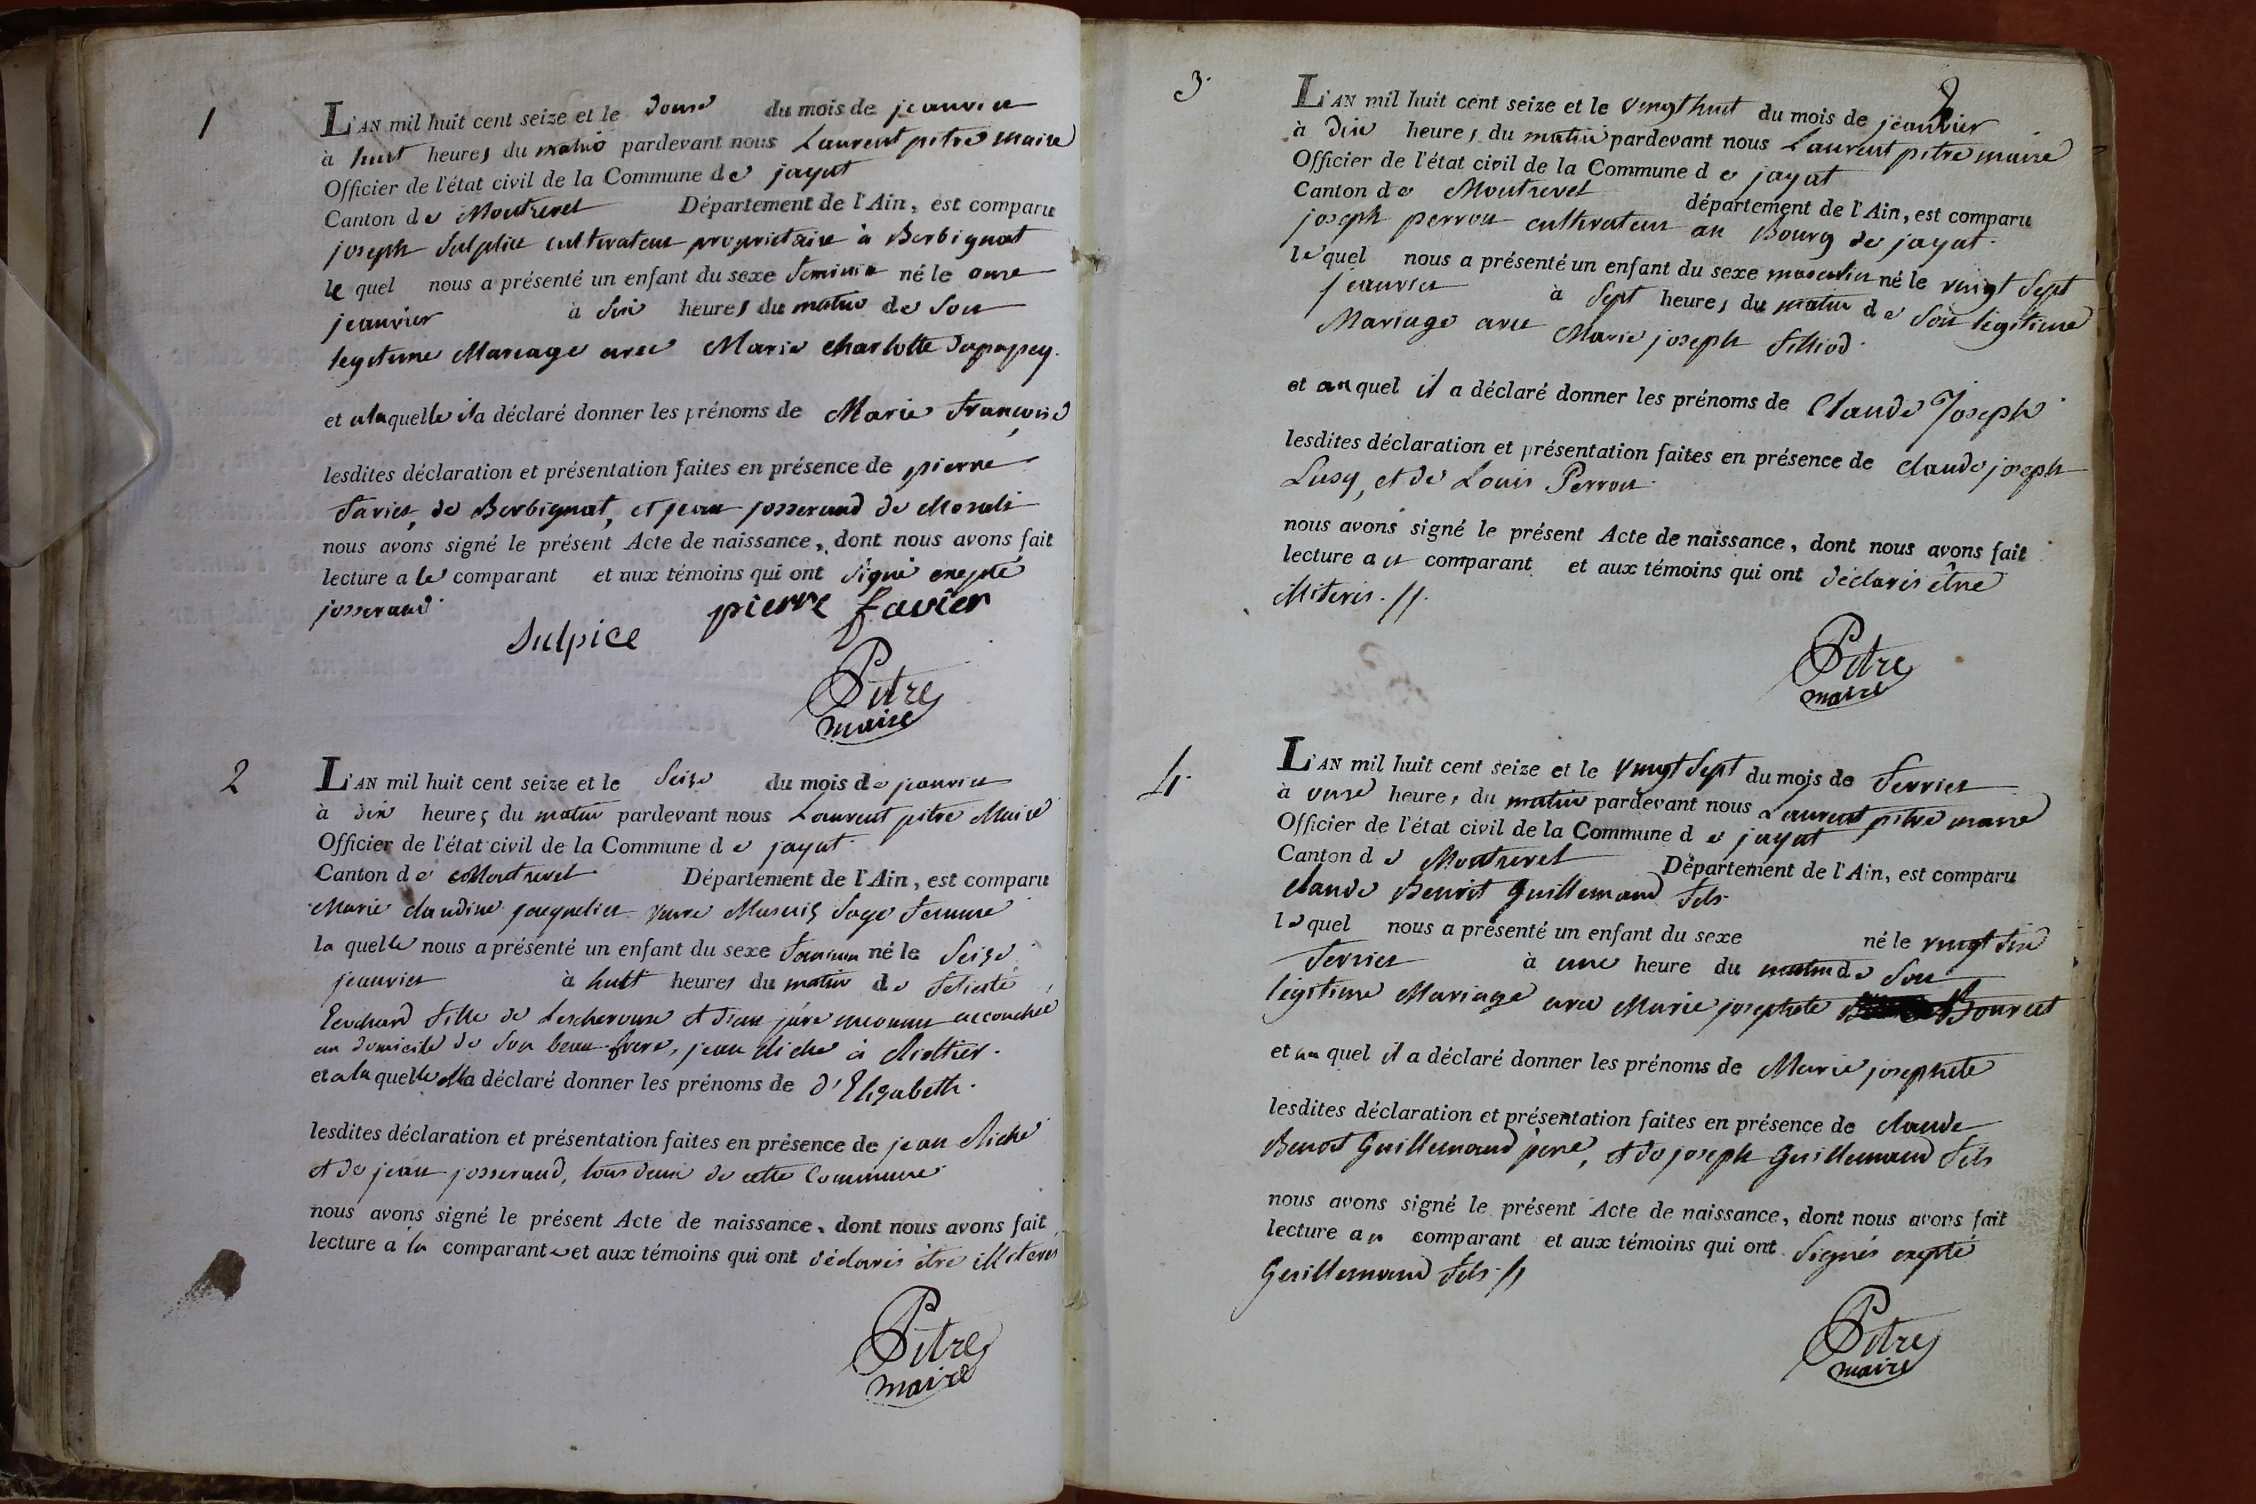 1
L'AN mil huit cent seize et le douse du mois de jeanvier
à huit heures du matin pardevant nous Laurent pitre maire
Officier de l'état civil de la Commune de jayat
Canton de Montrevel Département de l'Ain, est comparu
joseph Sulplice cultivateur propriétaire à Berbignat
le quel nous a présenté un enfant du sexe feminin né le onse
jeanvier à dix heures du matin de son
legitime Mariage avec Marie charlotte
et a laquelle il a déclaré donner les prénoms de Marie françoise
lesdites déclaration et présentation faites en présence de pierre
favier, de Berbignat, et jean josserand de
nous avons signé le présent Acte de naissance, dont nous avons fait
lecture a le comparant et aux témoins qui ont signé exepté
josserand.
Sulpice pierre favier
Pitre
maire
2
L'AN mil huit cent seize et le seize du mois de jeanvier
à dix heures du matin pardevant nous Laurent pitre Maire
Officier de l'état civil de la Commune de jayat.
Canton de Montrevel Département de l'Ain, est comparu
Marie claudine veuve sage femme
la quelle nous a présenté un enfant du sexe feminin né le seize
jeanvier à huit heures du matin de felicité
fille de Lescheroux et d'un père inconnu accouchée
au domicile de son beau-frere, jean
et a la quelle ella déclaré donner les prénoms de d'Elizabeth.
lesdites déclaration et présentation faites en présence de jean
et de jean josserand, tous deux de cette Commune
nous avons signé le présent Acte de naissance, dont nous avons fait
lecture à la comparante et aux témoins qui ont déclarés être illiterés
Pitre
maire
2
3.
L'AN mil huit cent seize et le vingt huit du mois de jeanvier
à dix heures du matin pardevant nous Laurent pitre maire
Officier de l'état civil de la Commune de jayat
Canton de Montrevel département de l'Ain, est comparu
joseph perron cultivateur au Bourg de jayat.
le quel nous a présenté un enfant du sexe masculin né le vingt sept
jeanvier à sept heures du matin de son légitime
Mariage avec Marie joseph
et au quel il a déclaré donner les prénoms de Claude Joseph
lesdites déclaration et présentation faites en présence de claude joseph
Lusy, et de Louis Perron.
nous avons signé le présent Acte de naissance, dont nous avons fait
lecture a et comparant et aux témoins qui ont déclarés être
illiterés. //.
Pitre
maire
4.
L'AN mil huit cent seize et le vingt sept du mois de fevrier
à onse heures du matin pardevant nous Laurent pitre maire
Officier de l'état civil de la Commune de jayat
Canton de Montrevel Département de l'Ain, est comparu
claude Benoit Guillemaud fils.
le quel nous a présenté un enfant du sexe né le vingt six
fevrier à une heure du matin de son
légitime Mariage avec Marie josephete Bourcet
et au quel il a déclaré donner les prénoms de Marie josephete
lesdites déclaration et présentation faites en présence de claude
Benoit Guillemaud père, et de joseph Guillemaud fils
nous avons signé le présent Acte de naissance, dont nous avons fait
lecture au comparant et aux témoins qui ont signés exepté
Guillemaud fils. //
Pitre
maire